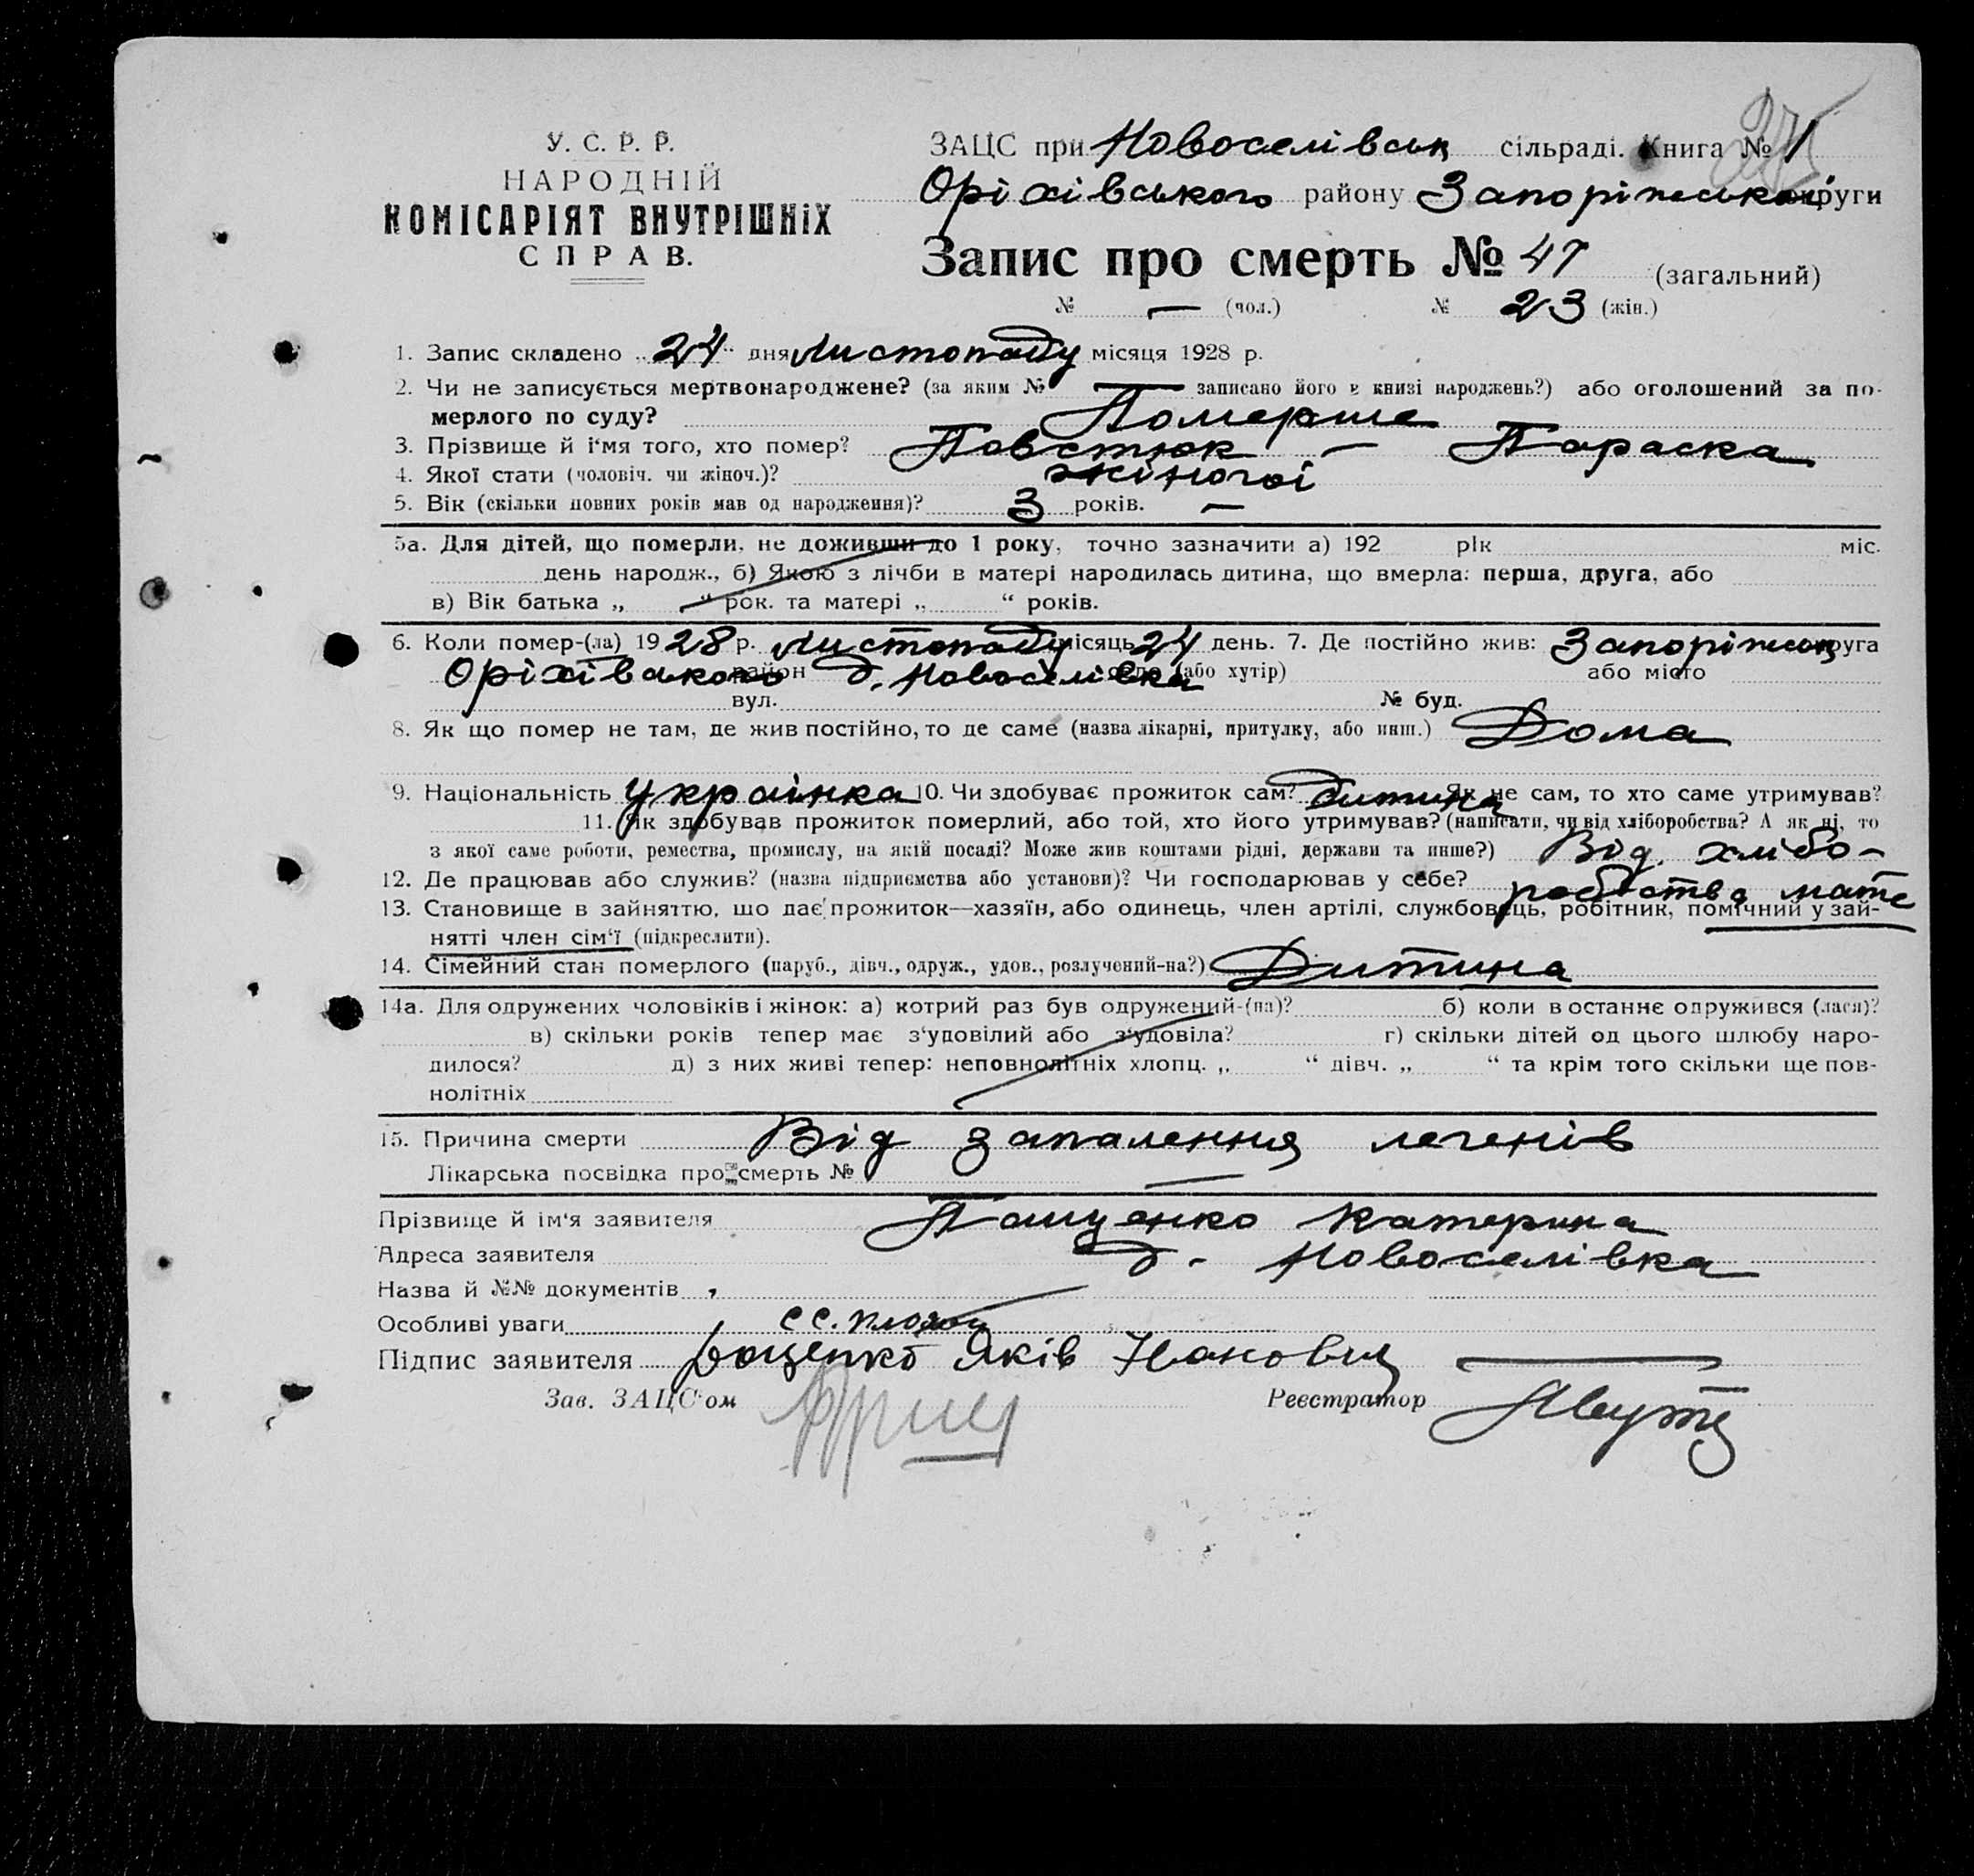 У. С. Р. Р.
НАРОДНІЙ
КОМІСАРІЯТ ВНУТРІШНІХ
СПРАВ.
ЗАЦС при Новоселівськ сільраді. Книга № 1
Оріхівського району Запоріжської округи
Запис про смерть № 47 (загальний)
№ — (чол.) № 23 (жін.)
1. Запис складено „24“ дня Листопаду місяця 1928 р.
2. Чи не записується мертвонароджене? (за яким № — записано його в книзі народжень?) або оголошений за по-
мерлого по суду? Померше
3. Прізвище й і'мя того, хто помер? Повстюк — Параска
4. Якої стати (чоловіч. чи жіноч.)? жіночої
5. Вік (скільки повних років мав од народження)? 3 років. —
5а. Для дітей, що померли, не доживши до 1 року, точно зазначити а) 192 рік міс.
день народж., б) Якою з лічби в матері народилась дитина, що вмерла: перша, друга, або
в) Вік батька „ “ рок. та матері „ “ років.
6. Коли помер-(ла) 1928 р. Листопаду місяць 24 день. 7. Де постійно жив: Запоріжськ округа
Оріхівського район д. Новоселівка село (або хутір) або місто
вул. № буд.
8. Як що помер не там, де жив постійно, то де саме (назва лікарні, притулку, або инш.) Дома
9. Національність українка 10. Чи здобуває прожиток сам? дитина Як не сам, то хто саме утримував?
11. Як здобував прожиток померлий, або той, хто його утримував? (написати, чи від хліборобства? А як ні, то
з якої саме роботи, ремества, промислу, на якій посаді? Може жив коштами рідні, держави та инше?) Від. хлібо-
12. Де працював або служив? (назва підприємства або установи)? Чи господарював у себе? робства
13. Становище в зайняттю, що дає прожиток—хазяїн, або одинець, член артілі, службовець, робітник, помічний у зай-
нятті член сім'ї (підкреслити).
14. Сімейний стан померлого (паруб., дівч., одруж., удов., розлучений-на?) Дитина
14а. Для одружених чоловіків і жінок: а) котрий раз був одружений-(на)? б) коли в останнє одружився (лася)?
в) скільки років тепер має з'удовілий або з'удовіла? г) скільки дітей од цього шлюбу наро-
дилося? д) з них живі тепер: неповнолітніх хлопц. „ “ дівч. „ “ та крім того скільки ще пов-
нолітніх
15. Причина смерти Від запалення легенів
Лікарська посвідка про смерть № —
Прізвище й ім'я заявителя Пащенко Катерина
Адреса заявителя д. Новоселівка
Назва й №№ документів
Особливі уваги
Підпис заявителя Доценко Яків Іванович
Зав. ЗАЦС'ом Реєстратор